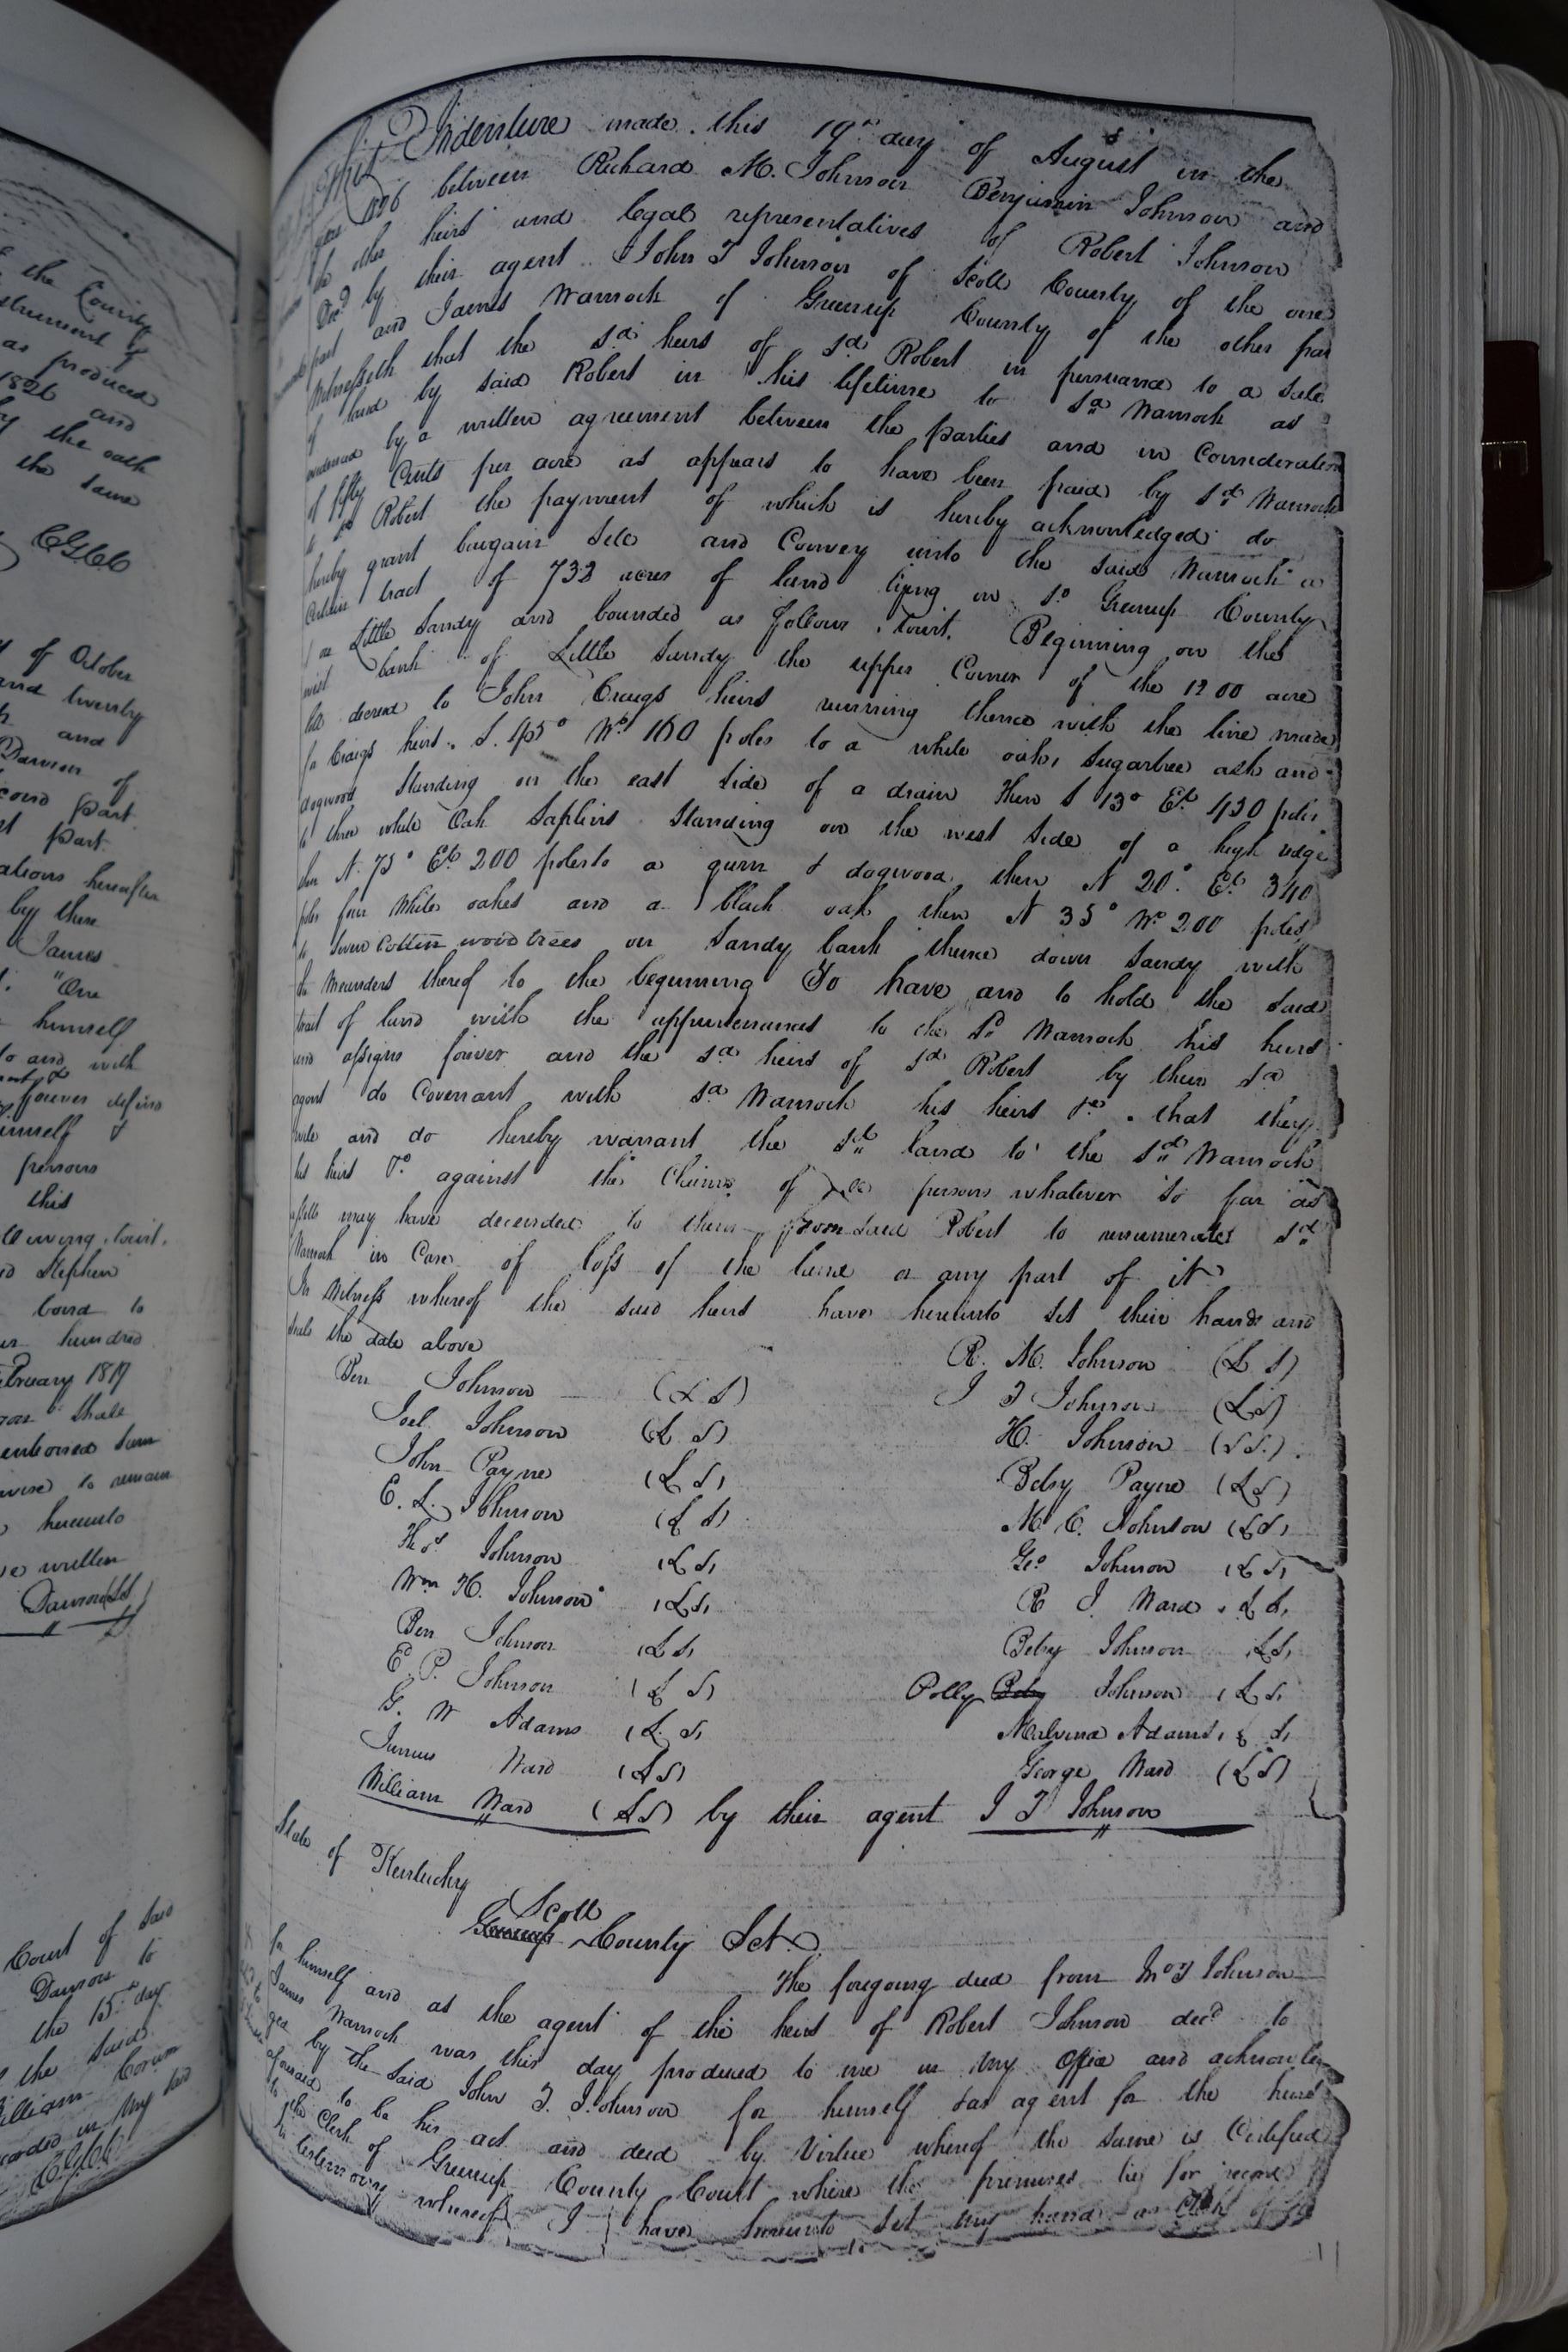 the County
strument of
as produced
1826 and
by the oath
the same
CGCC
of October
and twenty
and
Dawson of
cond part
st part
ations hereafter
by them
James
"One
himself
to and with
forever defend
himself &
persons
this
lowing, towit,
Stephen
bond to
hundred
February 1819
shall
entioned sum
to remain
hereunto
written
Dawson (LS)
Court of said
Dawson to
the 15th day
the said
William
corded in my
CGCC
This Indenture made this 19th day of August in the
year 1826 between Richard M. Johnson Benjamin Johnson and
the other heirs and legal representatives of Robert Johnson
Decd by their agent John T Johnson of Scott County of the one
part and James Warnock of Greenup County of the other par
Witnesseth that the sd heirs of sd Robert in persuance to a sale
of land by said Robert in his lifetime to sd Warnock as
evidenced by a written agreement between the parties and in Consideration
of fifty Cents per acre as appears to have been paid by sd Warnock
to sd Robert the payment of which is hereby acknowledged do
hereby grant bargain sell and Convey unto the said Warnock a
Certain tract of 732 acres of land lying in sd Greenup County
on Little Sandy and bounded as follows, towit. Beginning on the
west bank of Little Sandy the upper Corner of the 1200 acre
decreed to John Craigs heirs running thence with the line made
for Craigs heirs. S. 45° Wt 160 poles to a white oak, sugartree ash and
dogwood standing on the east side of a drain Then S 13° Et 430 poles
to three white Oak Saplins standing on the west side of a high ridge
then N. 75° Et 200 poles to a gum & dogwood, then N 20° Et 340
poles four White oakes and a black oak then N 35° Wt 200 poles
to seven cotton wood trees on Sandy bank thence down Sandy with
the Meanders thereof to the beginning To have and to hold the said
tract of land with the appurtenances to the sd Warnock his heirs
and assigns forever and the sd heirs of sd Robert by their sd
agent do Covenant with sd Warnock his heirs &c. that they
will and do hereby warrant the sd land to the sd Warnock
his heirs &c against the Claims of all persons whatever so far as
assetts may have decended to them from said Robert to renumerate sd
Warnock in Case of loss of the land or any part of it
In Witness whereof the said heirs have hereunto set their hands and
seals the date above
R. M. Johnson (L S)
Ben Johnson (L S) J T Johnson (LS)
Joel Johnson (L S) H. Johnson (LS)
John Payne (L S) Betsy Payne (LS)
E. L. Johnson (L S) M. C. Johnson (LS)
Thos Johnson (LS) Geo Johnson (LS)
Wm H. Johnson (LS) R J. Ward LS
Ben Johnson (LS) Betsy Johnson LS
E. P. Johnson (L S) Polly Betsy Johnson (LS)
G. W Adams (L S) Malvina Adams, L S,
Junius Ward (LS) George Ward (LS)
William Ward (LS) by their agent J T Johnson
State of Kentucky
Scott
Greenup County Sct.
The foregoing deed from Jno T Johnson
for himself and as the agent of the heirs of Robert Johnson decd to
James Warnock was this day produced to me in my Office and acknowle
ged by the said John T. Johnson for himself & as agent for the heirs
aforesaid to be his act and deed by Virtue whereof the same is Certified
to the Clerk of Greenup County Court where the premises lie for record
In testimony whereof I have hereunto set my hand as Clerk of